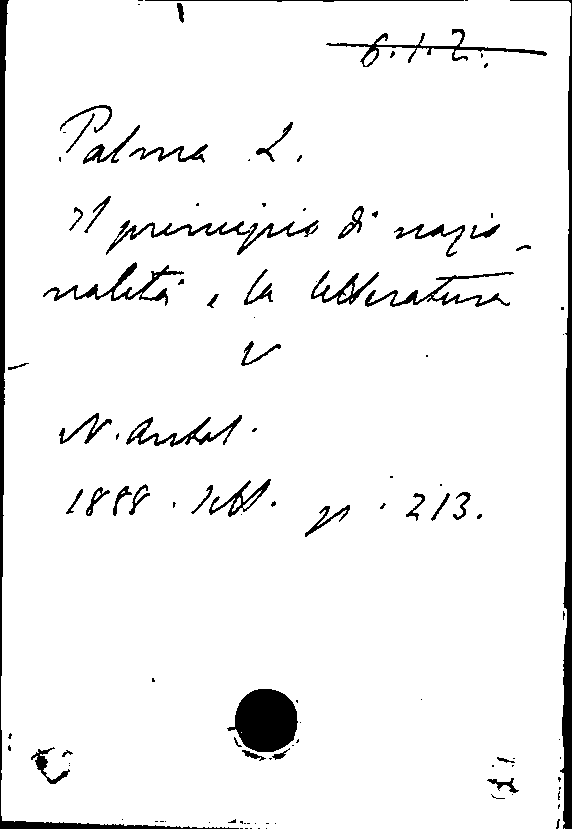 6.1.2.
Palma L.
Il principio di nazio-
nalità e la letteratura
V
N. Antol.
1888. Sett. p. 213.